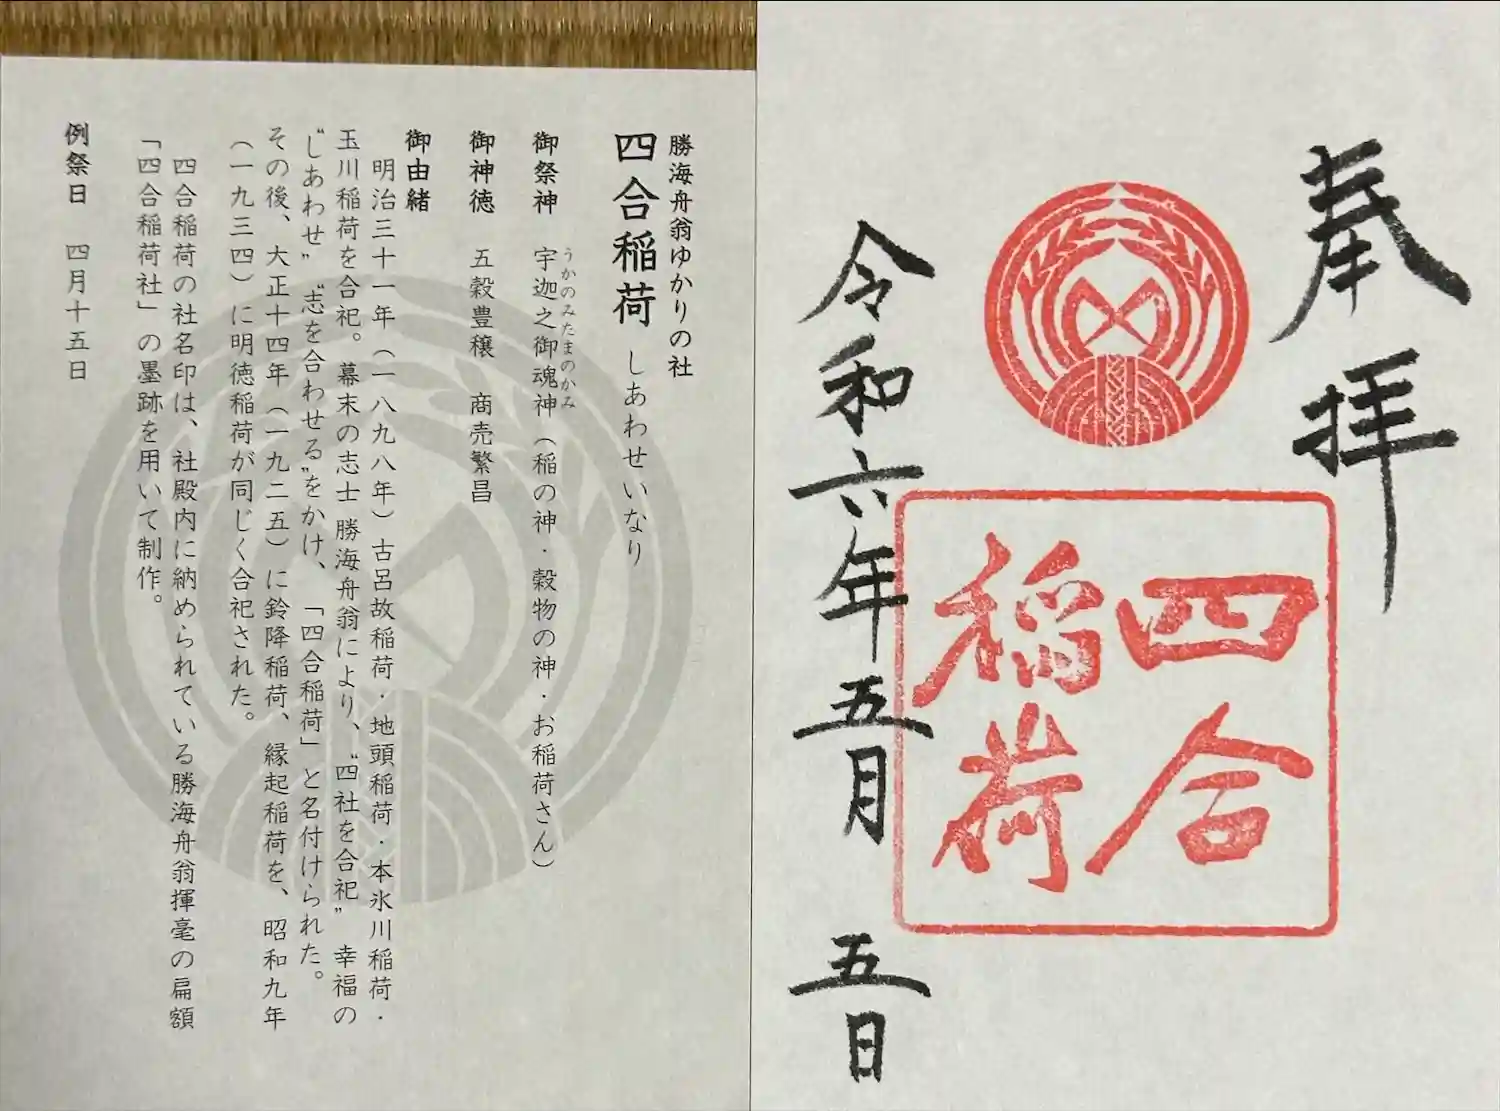 奉拝
四合
稲荷
令和六年五月 五日
勝海舟翁ゆかりの社
四合稲荷 しあわせいなり
御祭神 宇迦之御魂神（稲の神・穀物の神・お稲荷さん）
うかのみたまのかみ
御神徳 五穀豊穣 商売繁昌
御由緒
明治三十一年（一八九八年）古呂故稲荷・地頭稲荷・本氷川稲荷・
玉川稲荷を合祀。幕末の志士 勝海舟翁により、〝四社を合祀〟幸福の
〝しあわせ〟〝志を合わせる〟をかけ、「四合稲荷」と名付けられた。
その後、大正十四年（一九二五）に鈴降稲荷、縁起稲荷を、昭和九年
（一九三四）に明徳稲荷が同じく合祀された。
四合稲荷の社名印は、社殿内に納められている勝海舟翁揮毫の扁額
「四合稲荷社」の墨跡を用いて制作。
例祭日 四月十五日